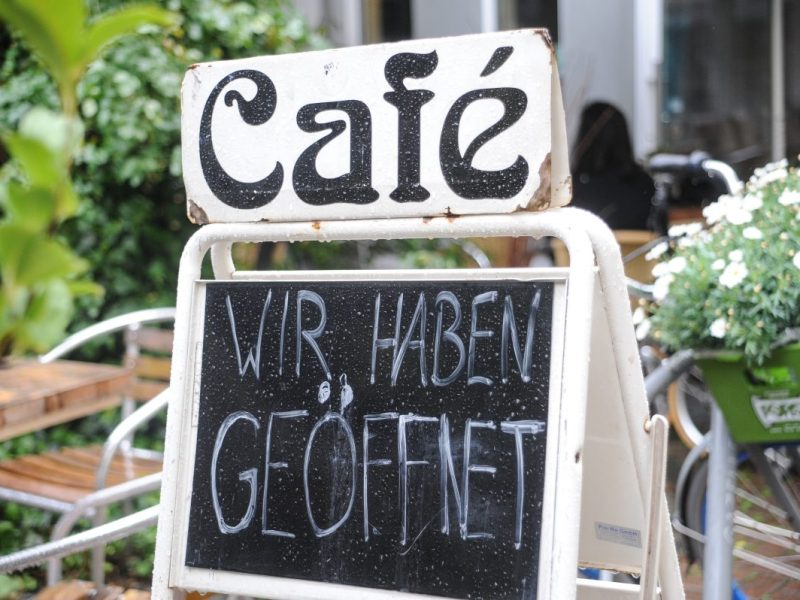 Café
WIR HABEN
GEÖFFNET